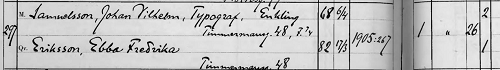 297 M. Samuelsson, Johan Vilhelm, Typograf, Enkling 68 6/4 2
Timmermansg. 48, 7.
1905:267 1 " 26
Qv. Eriksson, Ebba Fredrika 82 17/5 1
Timmermansg. 48